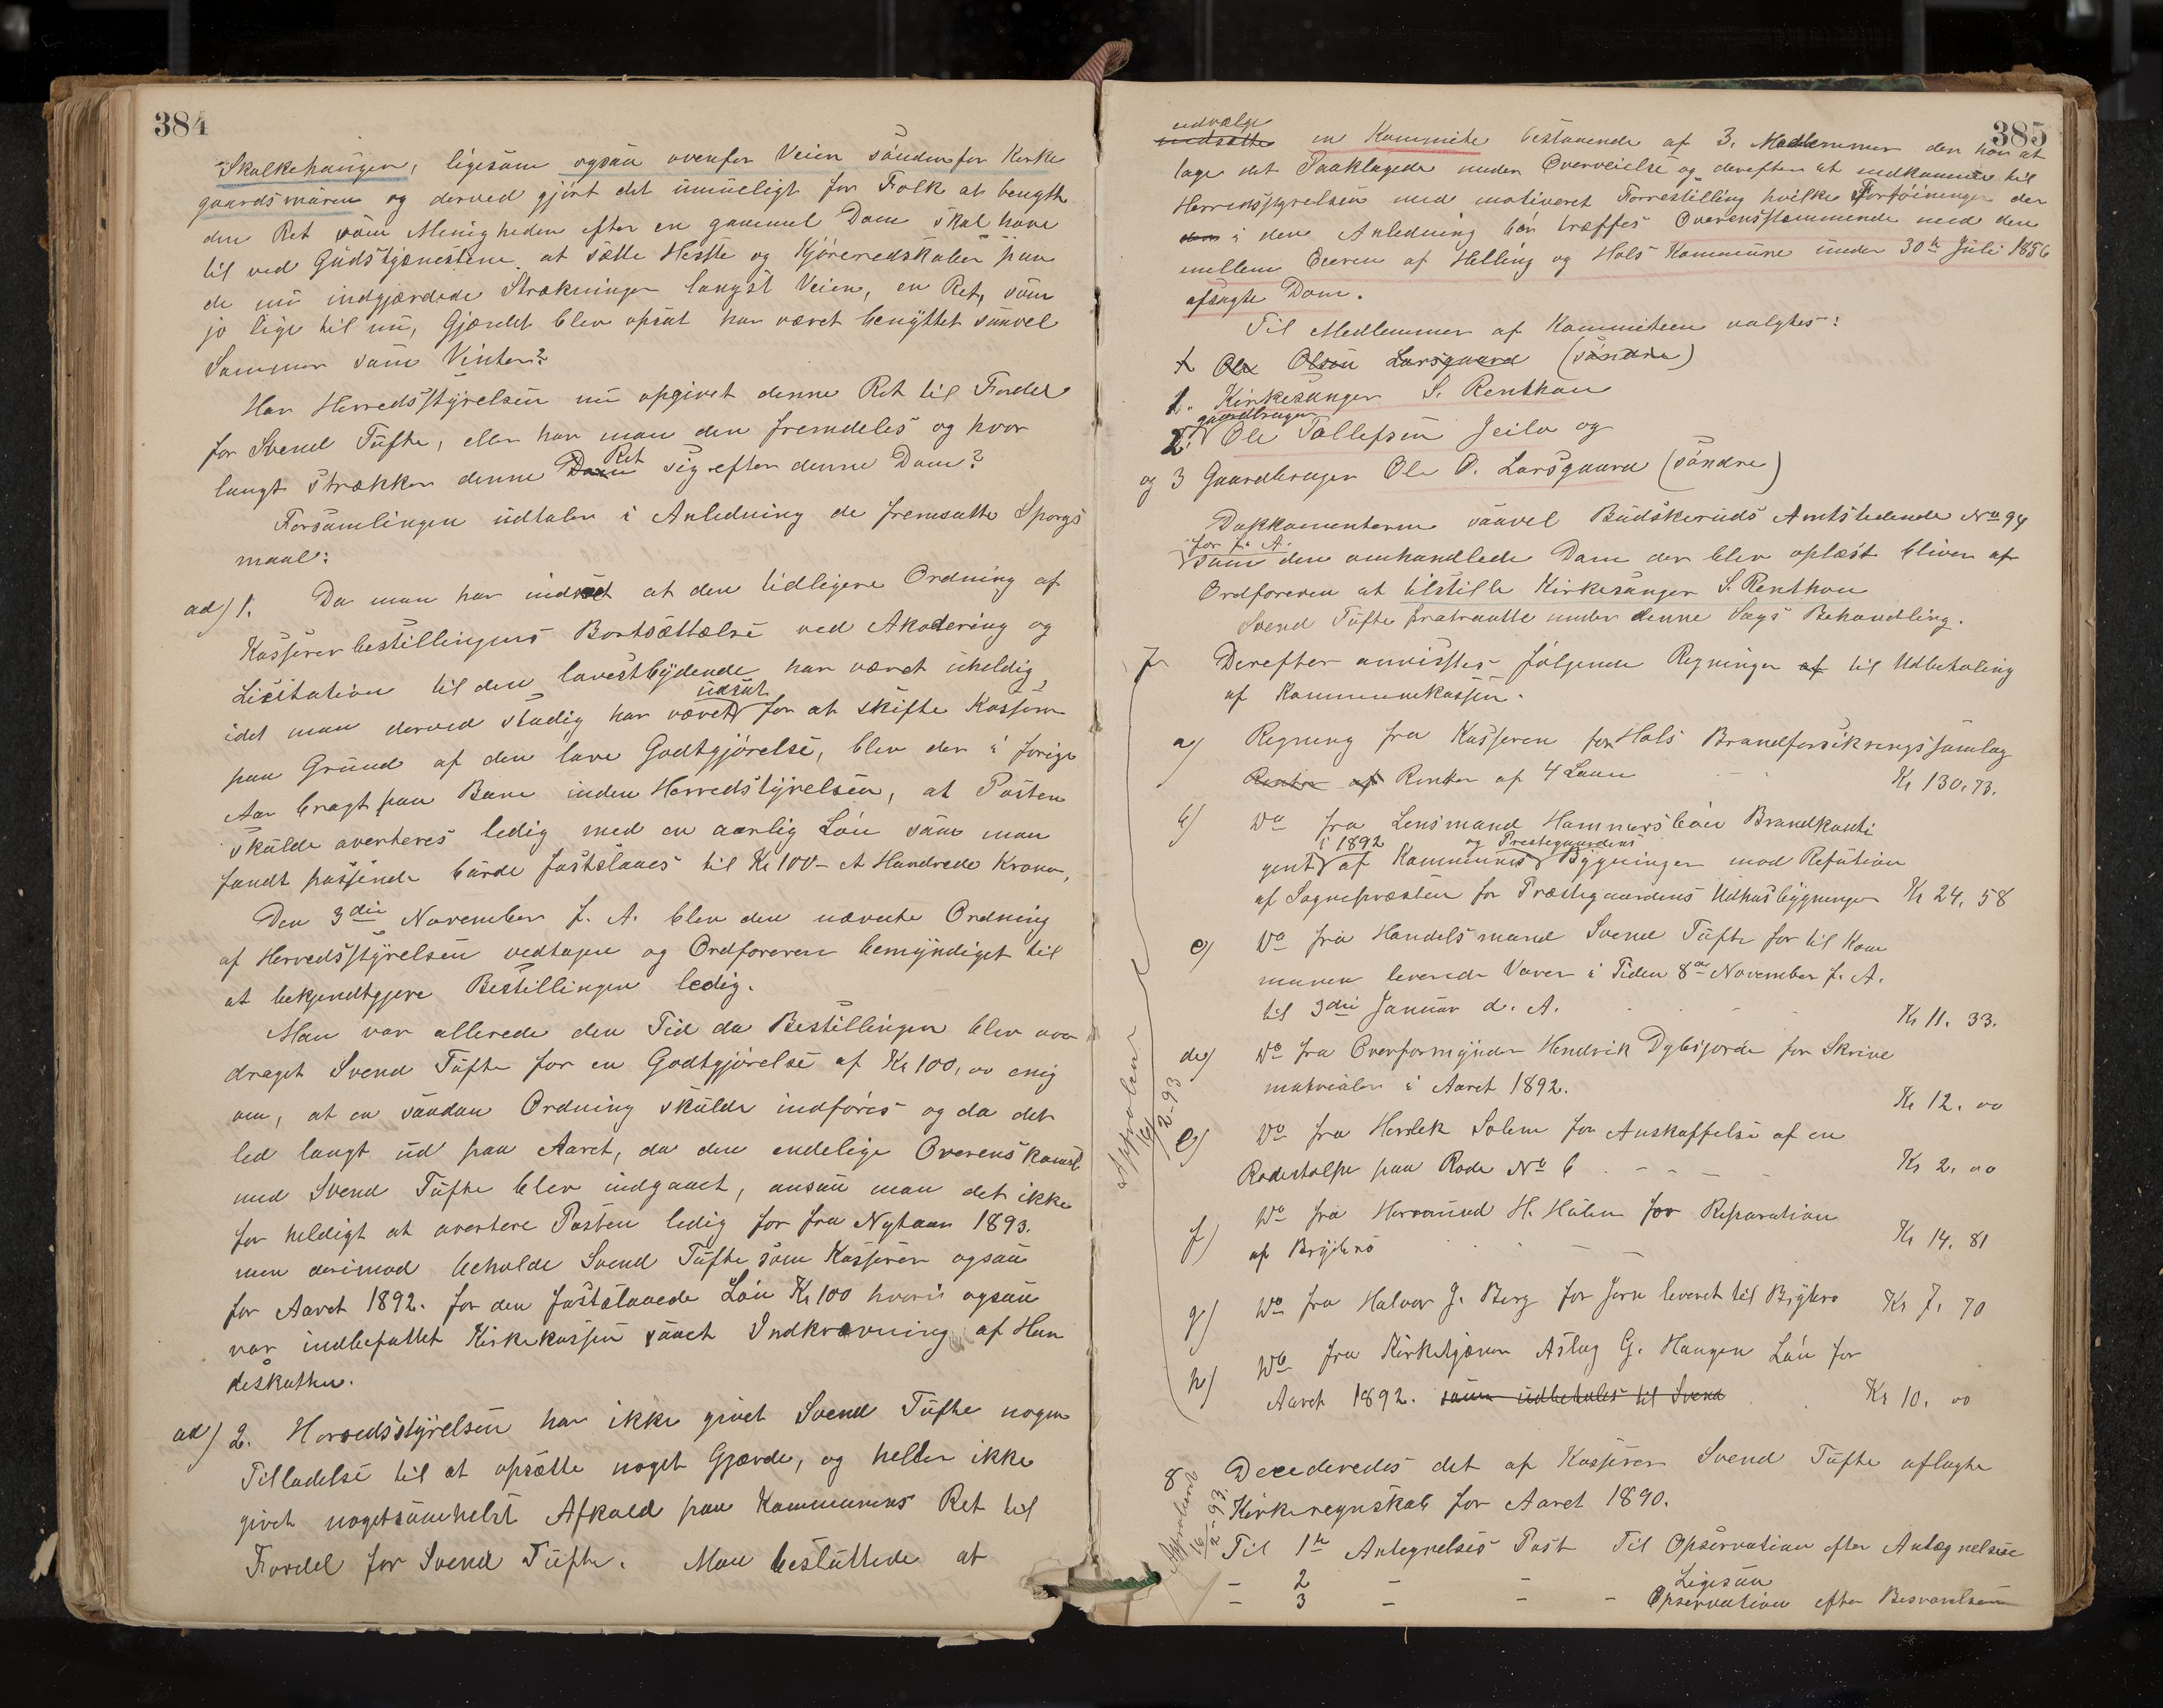 384
Skulkehaugen, ligesom ogsaa ovenfor Veien sönden for Kirke
gaardsmuren og derved gjört det umueligt for Folk at benytte
den Ret som Menigheden efter en gammel Dom skal have
til ved Gudstjenestene at sætte Heste og Kjöreredskaber paa
de nu indgjærdede Strækninger langst Veien, en Ret, som
jo lige til nu, Gjærdet blev opsat har været benyttet saavel
Sommer som Vinter?
Har Herredsstyrelsen nu opgivet denne Ret til Fordel
for Svend Tufte, eller har man den fremdeles og hvor
Ret
langt strækker denne Dom sig efter denne Dom?
Forsamlingen udtaler i Anledning de fremsatte Sporgs
maal:
ad) 1. Da man har indset at den tidligere Ordning af
Kasserer bestillingens Bortsættelse ved Akodering og
Lisitation til den lavestbydende har været uheldig,
udsat
idet man derved stadig har været for at skifte Kasserer
paa Grund af den lave Godtgjörelse, blev der i forige
Aar bragt paa Bane inden Herredstyrelsen, at Posten
skulde averteres ledig med en aarlig Lön som man
fandt passende burde fastslaaes til Kr 100 - Et Hundrede Kroner,
Den 3die November f. A. blev den nævnte Ordning
af Herredsstyrelsen vedtagen og Ordforeren bemyndiget til
at bekjendtgjøre Bestillingen ledig.
Man var allerede den Tid da Bestillingen blev over
draget Svend Tufte for en Godtgjörelse af Kr 100,00 enig
om, at en saadan Ordning skulde indföres og da det
led langt ud paa Aaret, da den endelige Overenskomst
med Svend Tufte blev indgaaet, ansaa man det ikke
for heldigt at avertere Posten ledig for fra Nytaar 1893.
men derimod beholde Svend Tufte som Kasserer ogsaa
for Aaret 1892. for den fastslaaede Lön Kr 100 hvori ogsaa
var indbefattet Kirkekassen samt Indkrævning af Hun
deskatten.
ad) 2. Herredsstyrelsen har ikke givet Svend Tufte nogen
Tilladelse til at opsætte noget Gjærde, og heller ikke
givet nogetsomhelst Afkald paa Kommunens Ret til
Fordel for Svend Tufte. Man besluttede at
385
udvælge
nedsætte en Kommite bestaaende af 3. Medlemmer der har at
tage det Paaklagede under Overveielse og derefter at indkomme til
Herredsstyrelsen med motiveret Forrestilling hvilke Forföininger der
i den Anledning bör træffes Overensstemmende med den
mellem Eieren af Helling og Hols Kommune under 30te Juli 1856
afsagte Dom.
Til Medlemmer af Kommiteen valgtes:
1 Ole Olsen Larsgaard (söndre)
1. Kirkesanger S. Renthon
gaardbruger
2. Ole Tollefsen Jeilo og
og 3 Gaardbruger Ole O. Larsgaard (söndre)
Dokkomenterne saavel Budskeruds Amtstidende No 94
for f. A.
som den omhandlede Dom der blev oplæst bliver af
Ordforeren at tilstille Kirkesanger S. Renthon
Svend Tufte fratraatte under denne Sags Behandling.
7 Derefter anvisstes fölgende Regninger af til Udbetaling
af Kommunekassen.
a) Regning fra Kasseren for Hols Brandforsikringssamlag
Renter af Renter af 4 Laan Kr 130,73.
b) Do fra Lensmand Hammersböen Brandkonti
i 1892 og Prestegaardens
gent af Kommunes Bygninger mod Refution
af Sognepræsten for Præstegaardens Udhusbygninger Kr 24,58
c) Do fra Handelsmand Svend Tufte for til Kom
munen leverede Varer i Tiden 8de November f. A.
til 3die Januar d. A. Kr 11. 33.
de) Do fra Overformynder Hendrik Dyksjorde for Skrive
matrialer i Aaret 1892. Kr 12. 00
e) Do fra Herlek Solem for Anskaffelse af en
Rodestolpe paa Rode No 6 Kr 2. 00
f) Do fra Hermund H. Holen for Reparation
af Brybro Kr 14. 81
g) Do fra Halvor J. Berg for Jern leveret til Brybro Kr 7. 70
h) Do fra Kirketjener Aslag G. Haugen Lön for
Aaret 1892. som udbetales til Svend Kr 10. 00
Approberes 16/2-93
8 Decederedes det af Kasserer Svend Tufte aflagte
Kirkeregnskab for Aaret 1890.
Approberes 16/2-93.
Til 1te Antegnelses Post Til Opservation efter Antægnelsen
- 2 - - Ligesaa
- 3 - - - Opservation efter Besvarelsen